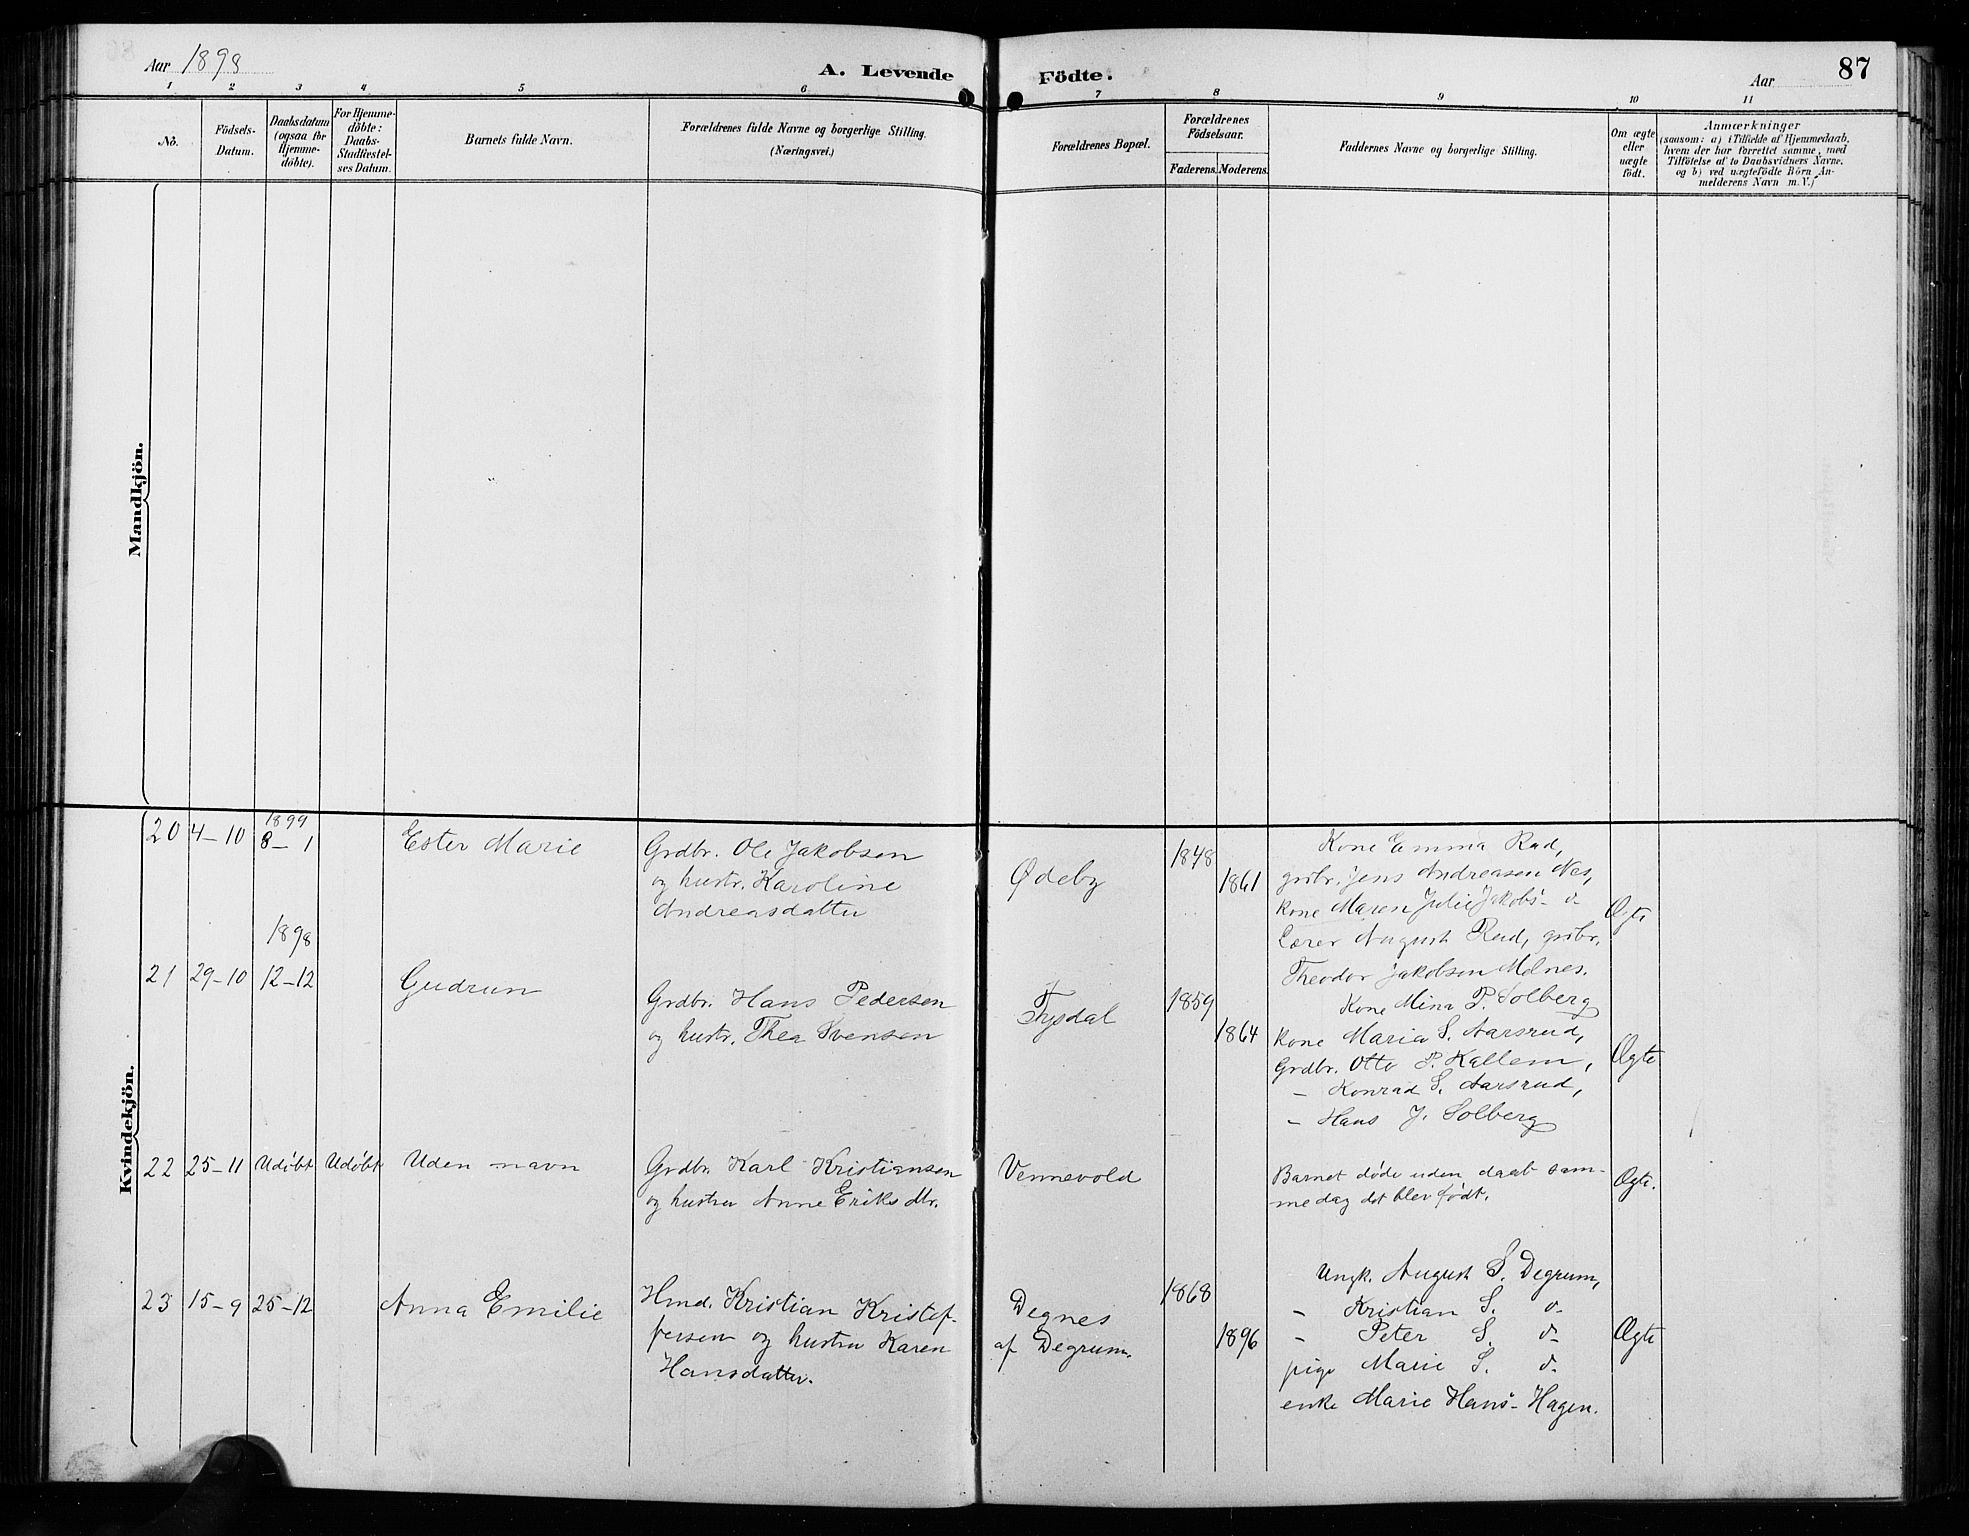 Aar 1898
A. Levende
Födte.
Aar
87
1 2 3 4 5 6 7 8 9 10 11
No.
Födsels-
Datum.
Daabsdatum
(ogsaa for
Hjemme-
döbte).
For Hjemme-
döbte:
Daabs-
Stadfæstel-
ses Datum.
Barnets fulde Navn.
Forældrenes fulde Navne og borgerlige Stilling.
(Næringsvei.)
Forældrenes Bopæl.
Forældrenes
Födselsaar.
Faderens.
Moderens.
Faddernes Navne og borgerlige Stilling.
Om ægte
eller
uægte
födt.
Anmærkninger
(saasom: a) i Tilfælde af Hjemmedaab,
hvem der har forrettet samme, med
Tilföielse af to Daabsvidners Navne.
og b) ved uægtefödte Börn An-
melderens Navn m. V.)
Mandkjön.
Kvindekjön.
20 4-10 1899
8-1
Ester Marie
Grdbr. Ole Jakobsen
og hustr. Karoline
Andreasdatter
Ødeby
1848
1861
Kone Emma Rud,
grdbr. Jens Andreasen Nes,
kone Maren Julie Jakobs- d-
Lærer August Rud, grdbr.
Theodor Jakobsen Melnes.
Ægte
1898
21 29-10 12-12
Gudrun
Grdbr. Hans Pedersen
og hustr. Thea Svensen
Tysdal
1859
1864
Kone Mina P. Solberg
kone Maria S. Aarsrud,
Grdbr. Otto P. Kallem,
- Konrad S. Aarsrud,
- Hans J. Solberg
Ægte
22 25-11 Udøbt Udøbt
Uden navn
Grdbr. Karl Kristiansen
og hustru Anne Eriks dtr.
Vennevold
Barnet døde uden daab sam-
me dag det blev født.
Ægte.
23 15-9 25-12
Anna Emilie
Hmd. Kristian Kristof-
fersen og hustru Karen
Hansdatter.
Degnes
af Degrum.
1868
1896
Ungk. August S. Degrum,
- Kristian S. d-
- Peter S. d-
pige Marie S. d-
enke Marie Hans- Hagen.
Ægte